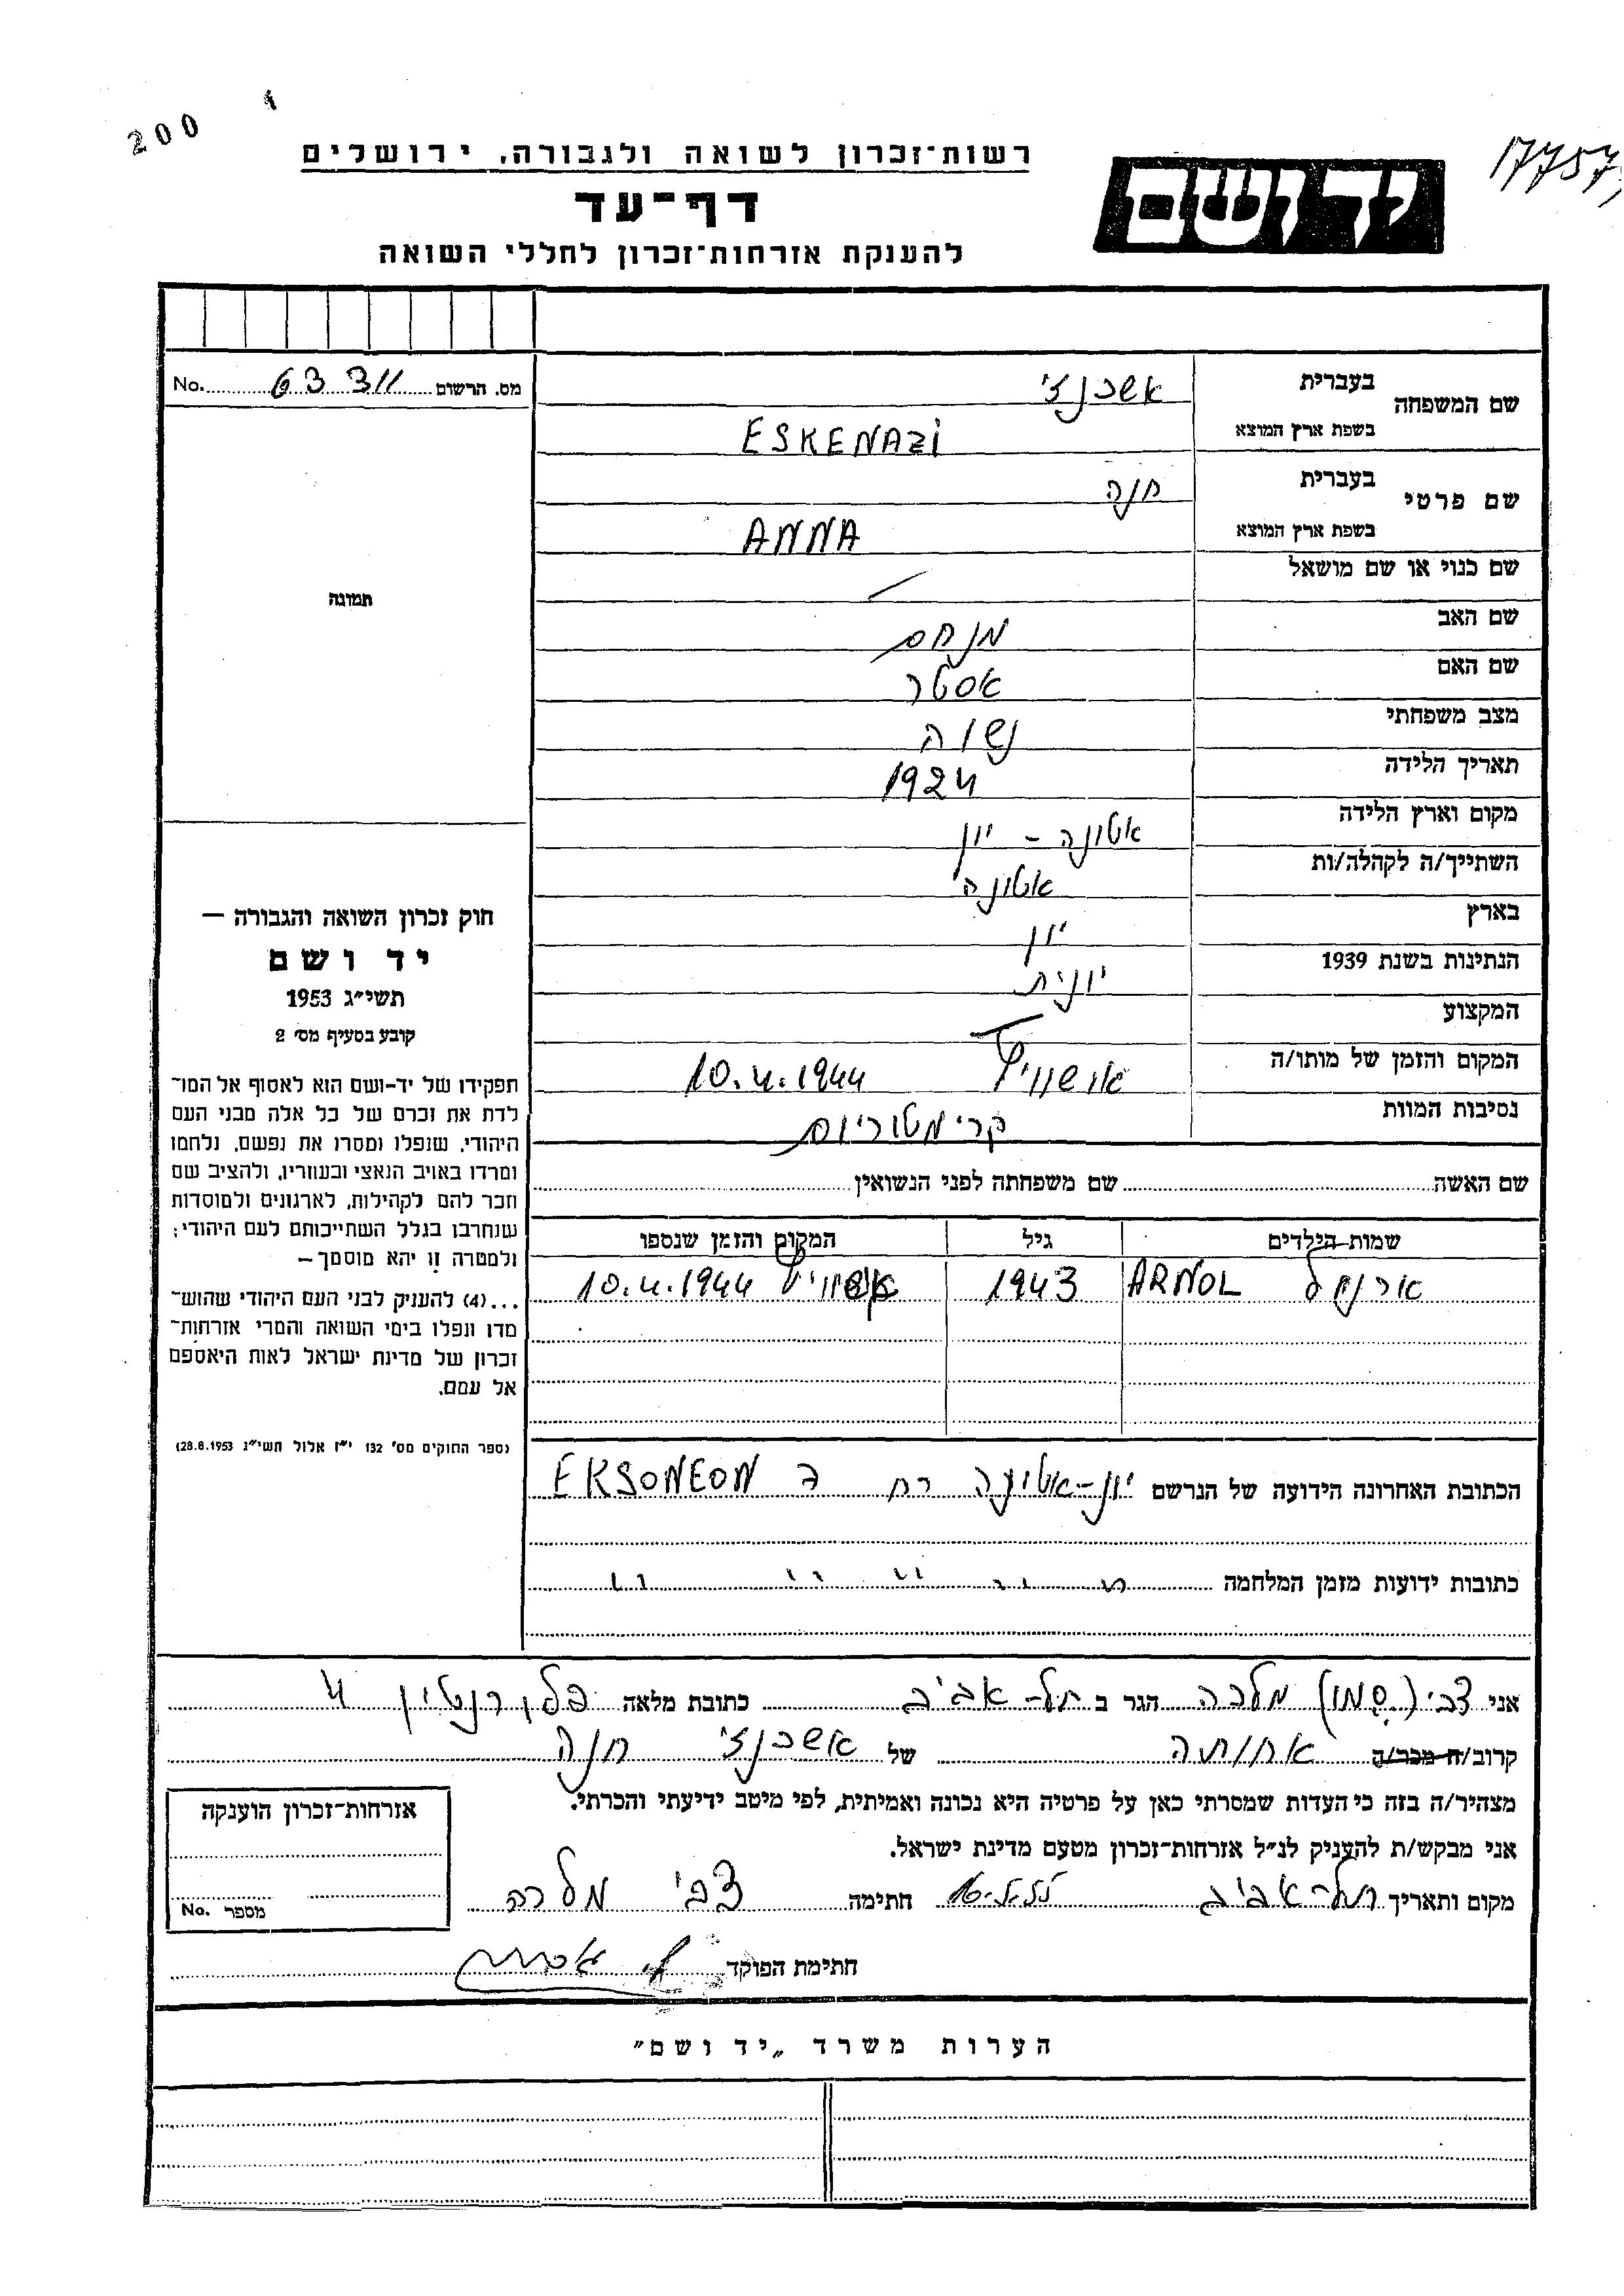 200
17757
רשות־זכרון לשואה ולגבורה, ירושלים
יד ושם
דף־עד
להענקת אזרחות־זכרון לחללי השואה
מס. הרשום 63 311 No.
שם המשפחה בעברית אשכנזי
בשפת ארץ המוצא ESKENAZi
שם פרטי בעברית חנה
בשפת ארץ המוצא ANNA
שם כנוי או שם מושאל /
שם האב מנחם
שם האם אסטר
מצב משפחתי נשוה
תאריך הלידה 1924
מקום וארץ הלידה אטונה - יון
השתייך/ה לקהלה/ות אטונה
בארץ יון
הנתינות בשנת 1939 יונית
המקצוע
המקום והזמן של מותו/ה אושוויץ 10.4.1944
נסיבות המוות קרימטוריום
שם האשה שם משפחתה לפני הנשואין
שמות הילדים גיל המקום והזמן שנספו
ארנול ARNOL 1943 אשוויץ 10.4.1944
הכתובת האחרונה הידועה של הנרשם יון-אטונה רח EKSONEON 7
כתובות ידועות מזמן המלחמה " " " " "
תמונה
חוק זכרון השואה והגבורה —
יד ושם
תשי״ג 1953
קובע בסעיף מס׳ 2
תפקידו של יד-ושם הוא לאסוף אל המו־
לדת את זכרם של כל אלה מבני העם
היהודי, שנפלו ומסרו את נפשם, נלחמו
ומרדו באויב הנאצי ובעוזריו, ולהציב שם
וזכר להם לקהילות, לארגונים ולמוסדות
שנחרבו בגלל השתייכותם לעם היהודי;
ולמטרה זו יהא מוסמך—
...(4) להעניק לבני העם היהודי שהוש־
מדו ונפלו בימי השואה והמרי אזרחות־
זכרון של מדינת ישראל לאות היאספם
אל עמם.
(ספר החוקים מס׳ 132 י״ז אלול תשי״ג 28.8.1953)
אני צבי (סמו) מלכה הגר ב תל-אביב כתובת מלאה פלורנטין 4
קרוב/ה מכר/ה אחותה של אשכנזי חנה
מצהיר/ה בזה כי העדות שמסרתי כאן על פרטיה היא נכונה ואמיתית, לפי מיטב ידיעתי והכרתי.
אני מבקש/ת להעניק לנ״ל אזרחות־זכרון מטעם מדינת ישראל.
מקום ותאריך תל-אביב חתימה צבי מלכה
חתימת הפוקד
אזרחות־זכרון הוענקה
מספר No.
הערות משרד „יד ושם״